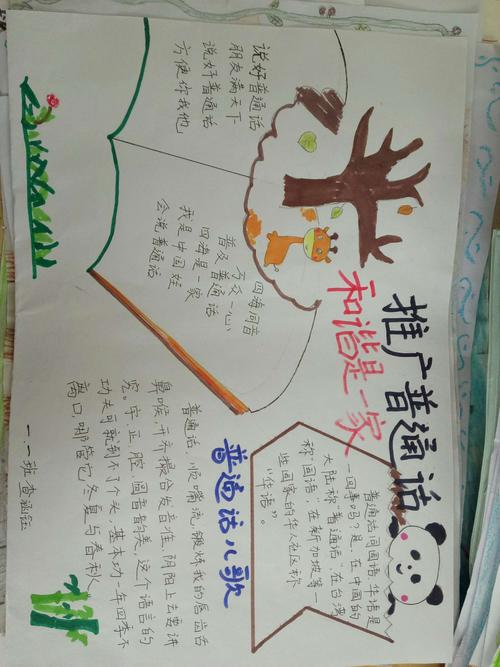 推广普通话
和谐是一家
说好普通话
朋友满天下
说好普通话
方便你我他
四海同音
万众一心
普及普通话
四海是一家
我是中国娃
会说普通话
普通话同国语、华语是
一回事吗?是。在中国的
大陆称“普通话”,在台湾
称“国语”,在新加坡等一
些国家的华人社区称
“华语”。
普通话儿歌
普通话,顺嘴流,锻炼我的唇齿舌
鼻喉,开齐撮合发音准,阴阳上去要讲
究。字正腔圆音韵美,这个语言的
功夫可就到不了个头,基本功,一年四季不
离口,哪管它冬夏与春秋。
一.一班 查涵钰